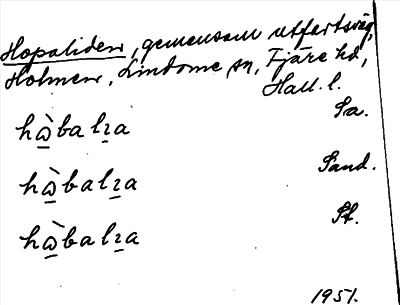 Hopaliden, gemensam utfartsväg,
Holmen, Lindome sn, Fjäre hd,
Hall. l.
Sa.
hὼ̲balɿ̲a
Sand.
hὼ̲balɿ̲a
St.
hὼ̲balɿ̲a
1951.